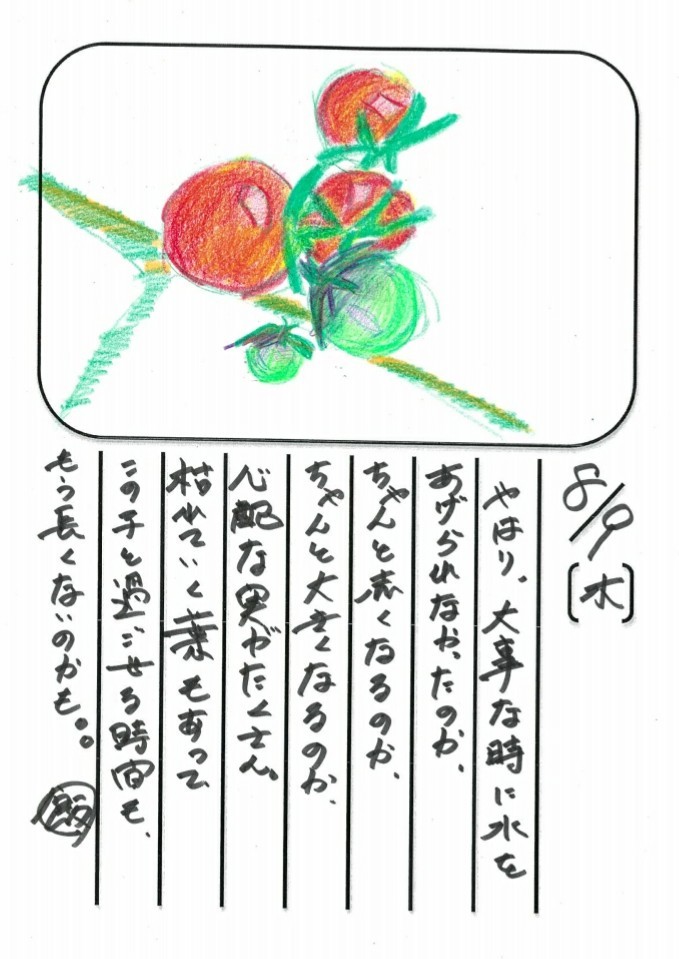 8/9〔木〕
やはり、大事な時に水を
あげられなかったのか、
ちゃんと赤くなるのか、
ちゃんと大きくなるのか、
心配な実がたくさん。
枯れていく葉もあって
この子と過ごせる時間も、
もう長くないのかも。。
飯